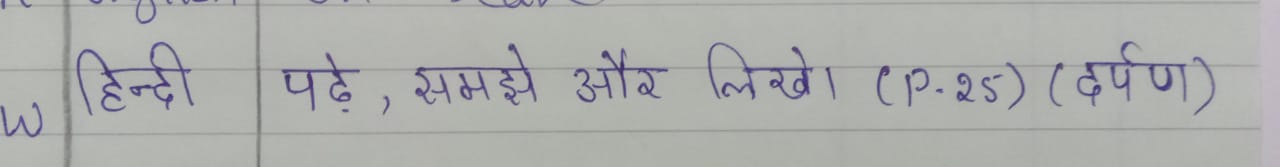 W हिन्दी पढ़े, समझे और लिखे। (P.25) (दर्पण)